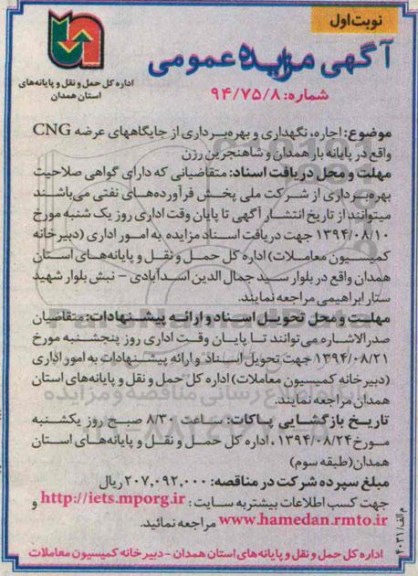 نوبت اول
آگهی مزایده عمومی
اداره کل حمل و نقل و پایانه‌های
استان همدان
شماره: ۹۴/۷۵/۸
موضوع: اجاره، نگهداری و بهره‌برداری از جایگاههای عرضه CNG
واقع در پایانه بار همدان و شاهنجرین رزن
مهلت و محل دریافت اسناد: متقاضیانی که دارای گواهی صلاحیت
بهره‌برداری از شرکت ملی پخش فرآورده‌های نفتی می‌باشند
میتوانند از تاریخ انتشار آگهی تا پایان وقت اداری روز یک شنبه مورخ
۱۳۹۴/۰۸/۱۰ جهت دریافت اسناد مزایده به امور اداری (دبیرخانه
کمیسیون معاملات) اداره کل حمل و نقل و پایانه‌های استان
همدان واقع در بلوار سید جمال الدین اسدآبادی - نبش بلوار شهید
ستار ابراهیمی مراجعه نمایند.
مهلت و محل تحویل اسناد و ارائه پیشنهادات: متقاضیان
صدرالاشاره می‌توانند تا پایان وقت اداری روز پنجشنبه مورخ
۱۳۹۴/۰۸/۲۱ جهت تحویل اسناد و ارائه پیشنهادات به امور اداری
(دبیرخانه کمیسیون معاملات) اداره کل حمل و نقل و پایانه‌های استان
همدان مراجعه نمایند.
تاریخ بازگشایی پاکات: ساعت ۸/۳۰ صبح روز یکشنبه
مورخ ۱۳۹۴/۰۸/۲۴، اداره کل حمل و نقل و پایانه‌های استان
همدان (طبقه سوم)
مبلغ سپرده شرکت در مناقصه: ۲۰۷,۰۹۲,۰۰۰ ریال
جهت کسب اطلاعات بیشتر به سایت: http://iets.mporg.ir و
www.hamedan.rmto.ir مراجعه نمائید.
م الف/۴۰۳۱
اداره کل حمل و نقل و پایانه‌های استان همدان - دبیرخانه کمیسیون معاملات